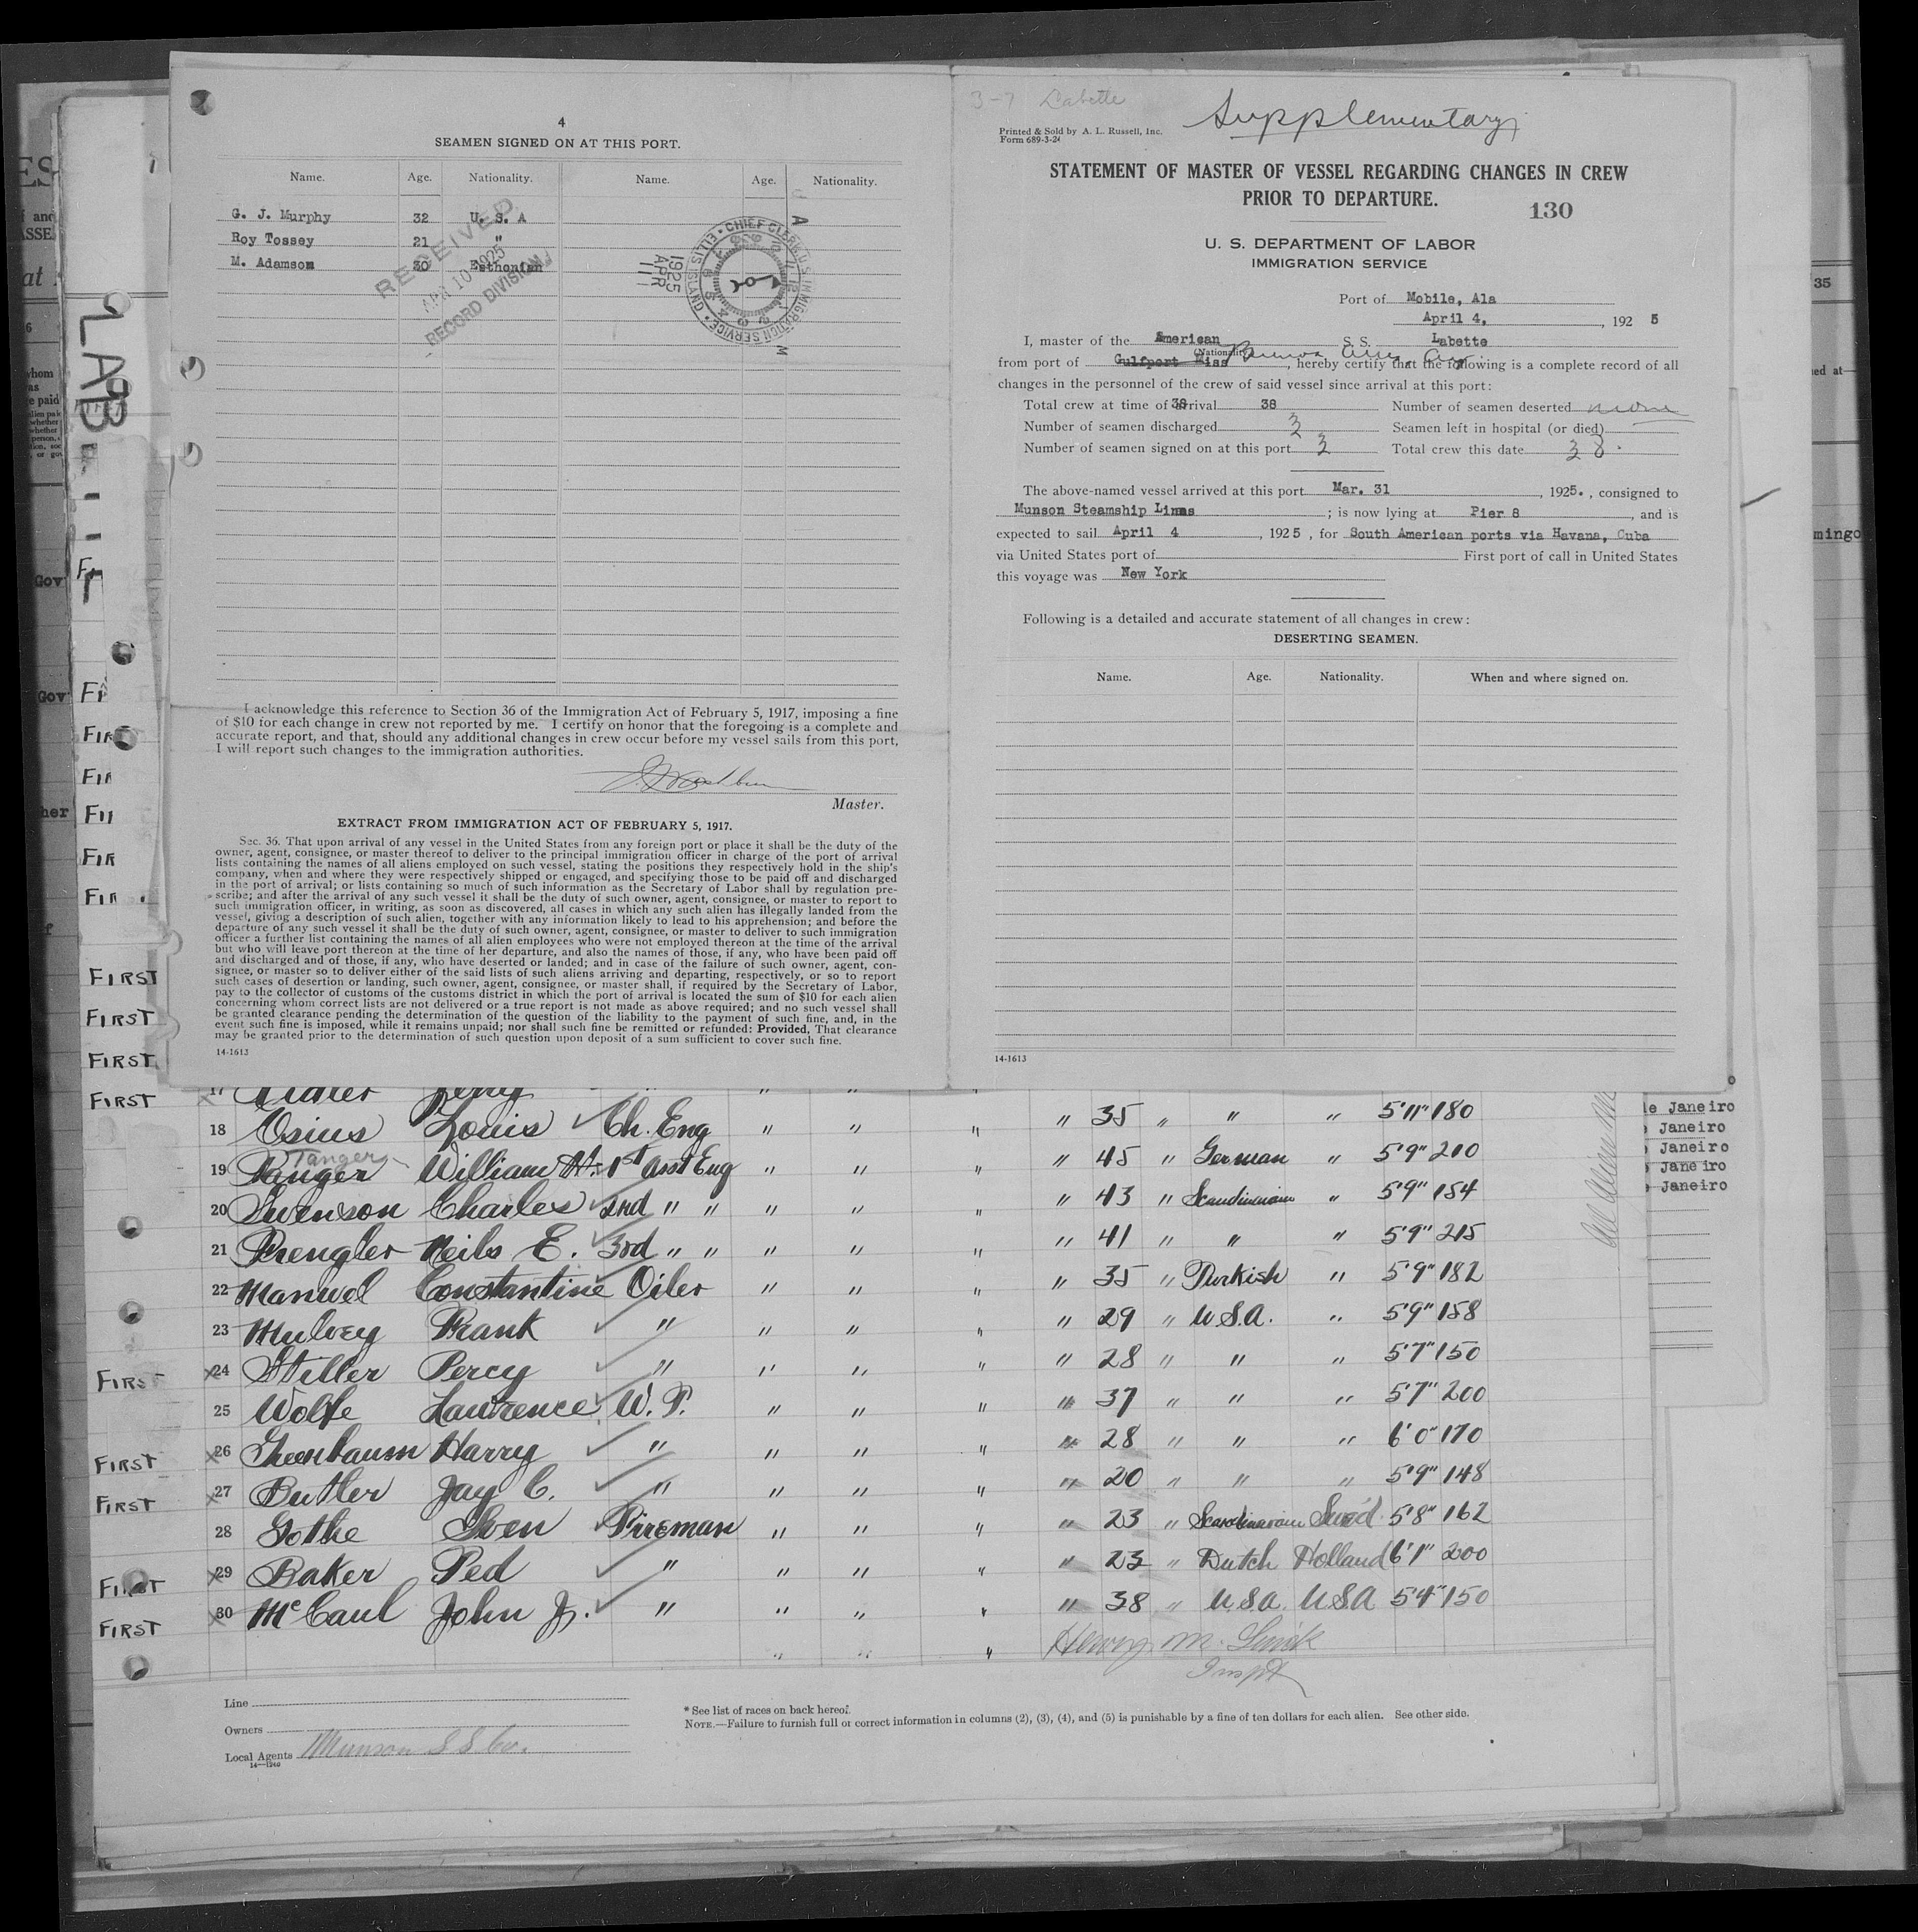 4
SEAMEN SIGNED ON AT THIS PORT.
Name. Age. Nationality. Name. Age. Nationality.
G. J. Murphy 32 U. S. A
Roy Tossey 21 "
M. Adamson 30 Esthonian
RECEIVED
APR 10 1925
RECORD DIVISION
1925
APR
11
CHIEF CLERK U.S. IMMIGRATION SERVICE · ELLIS ISLAND
I acknowledge this reference to Section 36 of the Immigration Act of February 5, 1917, imposing a fine
of $10 for each change in crew not reported by me. I certify on honor that the foregoing is a complete and
accurate report, and that, should any additional changes in crew occur before my vessel sails from this port,
I will report such changes to the immigration authorities.
Master.
EXTRACT FROM IMMIGRATION ACT OF FEBRUARY 5, 1917.
Sec. 36. That upon arrival of any vessel in the United States from any foreign port or place it shall be the duty of the
owner, agent, consignee, or master thereof to deliver to the principal immigration officer in charge of the port of arrival
lists containing the names of all aliens employed on such vessel, stating the positions they respectively hold in the ship's
company, when and where they were respectively shipped or engaged, and specifying those to be paid off and discharged
in the port of arrival; or lists containing so much of such information as the Secretary of Labor shall by regulation pre-
scribe; and after the arrival of any such vessel it shall be the duty of such owner, agent, consignee, or master to report to
such immigration officer, in writing, as soon as discovered, all cases in which any such alien has illegally landed from the
vessel, giving a description of such alien, together with any information likely to lead to his apprehension; and before the
departure of any such vessel it shall be the duty of such owner, agent, consignee, or master to deliver to such immigration
officer a further list containing the names of all alien employees who were not employed thereon at the time of the arrival
but who will leave port thereon at the time of her departure, and also the names of those, if any, who have been paid off
and discharged and of those, if any, who have deserted or landed; and in case of the failure of such owner, agent, con-
signee, or master so to deliver either of the said lists of such aliens arriving and departing, respectively, or so to report
such cases of desertion or landing, such owner, agent, consignee, or master shall, if required by the Secretary of Labor,
pay to the collector of customs of the customs district in which the port of arrival is located the sum of $10 for each alien
concerning whom correct lists are not delivered or a true report is not made as above required; and no such vessel shall
be granted clearance pending the determination of the question of the liability to the payment of such fine, and, in the
event such fine is imposed, while it remains unpaid; nor shall such fine be remitted or refunded: Provided, That clearance
may be granted prior to the determination of such question upon deposit of a sum sufficient to cover such fine.
14-1613
3-7 Labette
Supplementary
Printed & Sold by A. L. Russell, Inc.
Form 689-3-24
STATEMENT OF MASTER OF VESSEL REGARDING CHANGES IN CREW
PRIOR TO DEPARTURE.
130
U. S. DEPARTMENT OF LABOR
IMMIGRATION SERVICE
Port of Mobile, Ala
April 4, , 192 5
I, master of the American S. S. Labette
(Nationality)
from port of Gulfport Miss Buenos Aires Arg. , hereby certify that the following is a complete record of all
changes in the personnel of the crew of said vessel since arrival at this port:
Total crew at time of arrival 38 38 Number of seamen deserted none
Number of seamen discharged 3 Seamen left in hospital (or died)
Number of seamen signed on at this port 3 Total crew this date 38.
The above-named vessel arrived at this port Mar. 31 , 1925. , consigned to
Munson Steamship Lines ; is now lying at Pier 8 , and is
expected to sail April 4 , 1925 , for South American ports via Havana, Cuba
via United States port of First port of call in United States
this voyage was New York
Following is a detailed and accurate statement of all changes in crew:
DESERTING SEAMEN.
Name. Age. Nationality. When and where signed on.
14-1613
LAB
FIRST
FIRST
FIRST
FIRST
17
18 Osius Louis Ch. Eng " " " " 35 " " " 5'11" 180
19 Tanger Tanger William H. 1st Asst Eng " " " " 45 " German " 5'9" 210
20 Swenson Charles 2nd " " " " " " 43 " Scandinavian " 5'9" 184
21 Prengler Neils E. 3rd " " " " " " 41 " " " 5'9" 215
22 Manwel Constantine Oiler " " " " 35 " Turkish " 5'9" 182
23 Mulvey Frank " " " " " 29 " U.S.A. " 5'9" 158
FIRST x24 Stiller Percy " " " " " 28 " " " 5'7" 150
25 Wolfe Lawrence W.T. " " " " 37 " " " 5'7" 200
FIRST x26 Greenbaum Harry " " " " " 28 " " " 6'0" 170
FIRST x27 Butler Jay C. " " " " " 20 " " " 5'9" 148
28 Gothe Sven Fireman " " " " 23 " Scandinavian Swed. 5'8" 162
FIRST x29 Baker Ped " " " " " 23 " Dutch Holland 6'1" 200
FIRST x30 McCaul John J. " " " " " 38 " U.S.A. USA 5'4" 150
" " "
Inspt
Line
Owners
Local Agents Munson S S Co.
* See list of races on back hereof.
NOTE.—Failure to furnish full or correct information in columns (2), (3), (4), and (5) is punishable by a fine of ten dollars for each alien. See other side.
de Janeiro
Janeiro
Janeiro
Janeiro
Janeiro
35
mingo